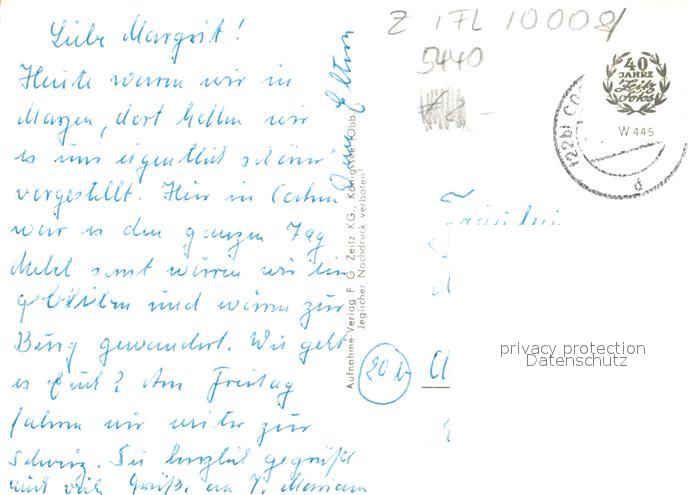 Liebe Margrit!
Heute waren wir in
Mayen, dort hatten wir
es uns eigentlich schöner
vorgestellt. Hier in Cochem
war es den ganzen Tag
Nebel sonst wären wir hier
geblieben und wären zur
Burg gewandert. Wie geht
es Euch? Am Freitag
fahren wir weiter zur
Schweiz. Sei herzlich gegrüßt
und viele Grüße an
Eltern
Aufnahme-Verlag F. G. Zeitz KG., Königssee/Obb.
Jeglicher Nachdruck verboten!
Z 1FL 10008/
5440
40
JAHRE
Zeitz
Fotos
W 445
(22b) CO
d
Fräulein
20b
privacy protection
Datenschutz